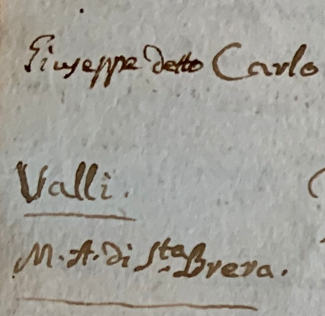 Giuseppe detto Carlo
Valli.
M. A. di Sta Brera.